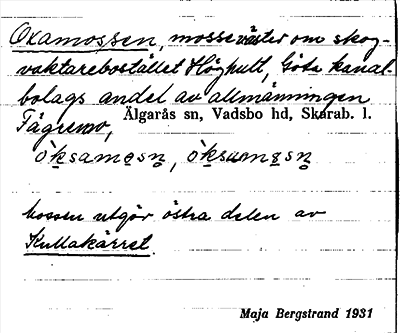 Oxamossen, mosse väster om skog-
vaktarebostället Höghult, Göta kanal-
bolags andel av allmänningen
Tågremo, Älgarås sn, Vadsbo hd, Skarab. l.
mossen utgör östra delen av
Kullakärret.
Maja Bergstrand 1931